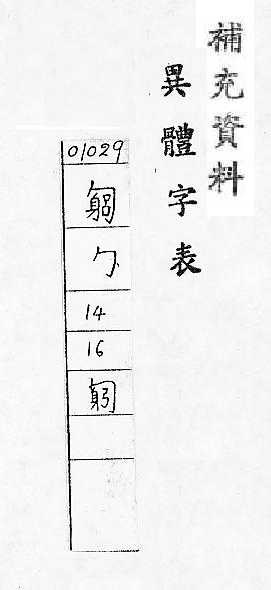 補充資料
異體字表
01029
匑
勹
14
16
匔